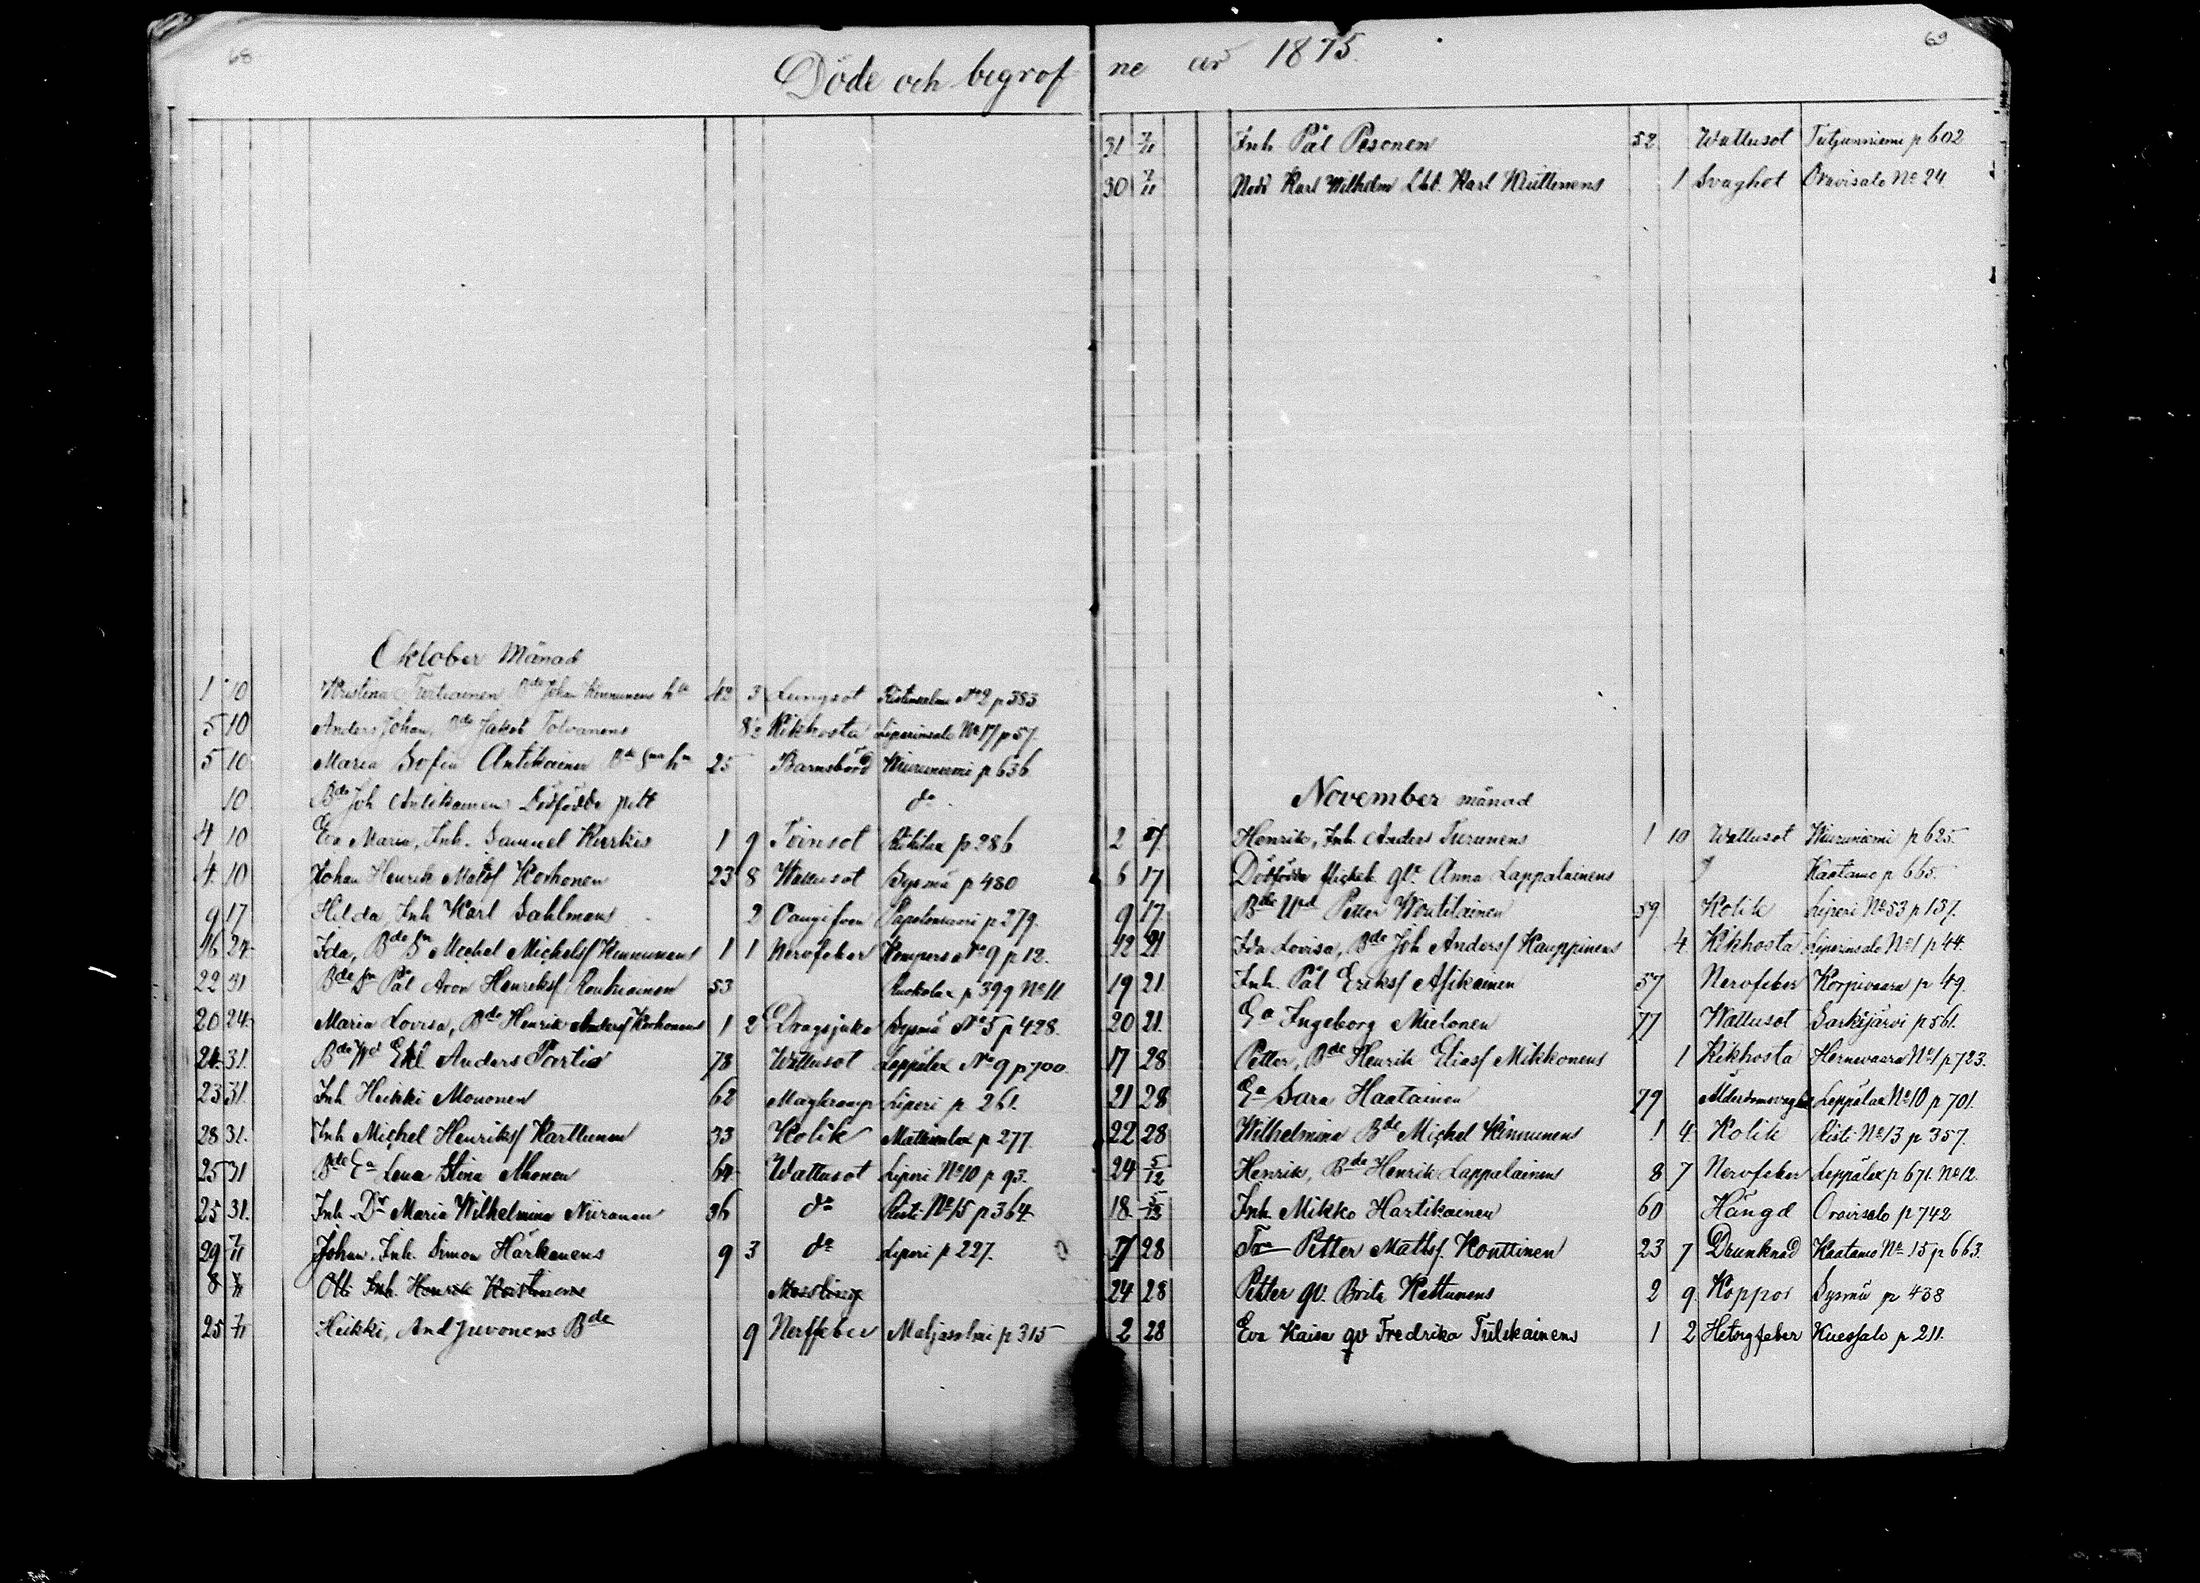 68
Döde och begrof
Oktober Månad
1 10 Kristina Turtiainen Bde Johan Kinnunens ha 42 3 Lungsot Ristinsalmi No 2 p 383
5 10 Anders Johan, Bde Jakob Tolvanens 8 1/2 Kikhosta Liperinsalo No 17 p 57.
5 10 Maria Sofia Antikainen Bde hu 25 Barnsbörd Kiuruniemi p 636
10 Bde Joh Antikainen Dödfödde do
4 10 Eva Maria, Inh. Samuel Kurkis 1 9 Tvinsot p 286
4 10 Johan Henrik Matsf Korhonen 23 8 Wattusot Sysmä p 480
9 17 Hilda, Inh Karl Sahlmans 2 Oangifven Papelonsaari p 279.
16 24 Ida, Bde Sn Michel Michelsf Kinnunens 1 1 Nervfeber Kompero No 9 p 12.
22 31 Bde Sn Pål Aron Henriksf Roukiainen 53 Ruokolax p 399 No 11
20 24 Maria Lovisa, Bde Henrik Andersf Korhonens 1 2 Dragsjuka Sysmä No 5 p 428.
24 31. Bde Anders Partia 78 Wattusot Leppälax No 9 p 700.
23 31. Inh Heikki Mononen 62 Magkramp Liperi p 261.
28 31. Inh Michel Henriksf Karttunen 33 Kolik Mattisenlax p 277
25 31 Bde Ea Lena Stina Ahonen 64 Wattusot Liperi No 10 p 93.
25 31. Inh. Dr Maria Wilhelmina Niiranen 36 do Risti No 15 p 364
29 7/11 Johan, Inh. Simon Härkänens 9 3 do Liperi p 227.
8 7/11 Otto Inh. Henrik Koistinens Messling
25 7/11 Heikki, And Juvonens Bde 9 Nerffeber Maljasalmi p 315
69
ne år 1875.
31 7/11 Inh Pål Pesonen 52 Wattusot Tutjunniemi p 602
30 7/11 Karl Wilhelm Karl Kuittinens 1 Svaghet Oravisalo No 24
November månad
2 17 Henrik, Inh. Anders Turunens 1 10 Wattusot Kiuruniemi p 625.
6 17 Dödfödde flicka qv. Anna Lappalainens Kaatamo p 665.
9 17. Bde Petter Woutilainen 59 Kolik Liperi No 53 p 137.
12 21 Ida Lovisa, Bde Joh Andersf Kauppinens 4 Kikhosta Liperinsalo No 1 p 44
19 21 Inh. Pål Eriksf Asikainen 57 Nervfeber Korpivaara p 49.
20 21. Ea Ingeborg Mielonen 77 Wattusot Särkijärvi p 561.
17 28 Petter, Bde Henrik Eliasf Mikkonens 1 Kikhosta Hernevaara No 1 p 723.
21 28 Ea Sara Haatainen 79 Ålderdomsvaghet Leppälax No 10 p 701.
22 28 Wilhelmina Bde Michel Kinnunens 1 4 Kolik Risti No 13 p 357.
24 5/12 Henrik, Bde Henrik Lappalainens 8 7 Nervfeber Leppälax p 671 No 12.
18 5/12 Inh. Mikko Hartikainen 60 Hängd Oravisalo p 742
7 28 Petter Mattsf. Konttinen 23 7 Drunknad Kaatamo No 15 p 663.
24 28 Petter qv. Brita Kettunens 2 9 Koppor Sysmä p 438
2 28 Eva Kaisa qv Fredrika Tulikainens 1 2 Hetsigfeber Kuessalo p 211.